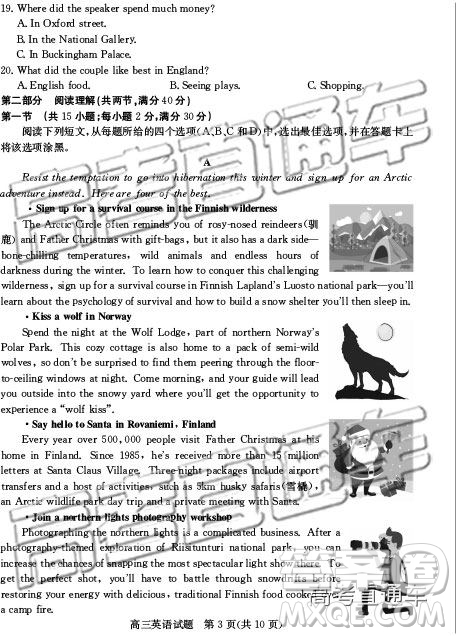 19. Where did the speaker spend much money?
A. In Oxford street.
B. In the National Gallery.
C. In Buckingham Palace.
20. What did the couple like best in England?
A. English food. B. Seeing plays. C. Shopping.
第二部分 阅读理解(共两节,满分 40 分)
第一节 (共 15 小题;每小题 2 分,满分 30 分)
阅读下列短文,从每题所给的四个选项(A、B、C 和 D)中,选出最佳选项,并在答题卡上
将该选项涂黑。
A
Resist the temptation to go into hibernation this winter and sign up for an Arctic
adventure instead. Here are four of the best.
· Sign up for a survival course in the Finnish wilderness
The Arctic Circle often reminds you of rosy-nosed reindeers(驯
鹿) and Father Christmas with gift-bags, but it also has a dark side—
bone-chilling temperatures, wild animals and endless hours of
darkness during the winter. To learn how to conquer this challenging
wilderness, sign up for a survival course in Finnish Lapland's Luosto national park—you'll
learn about the psychology of survival and how to build a snow shelter you'll then sleep in.
· Kiss a wolf in Norway
Spend the night at the Wolf Lodge, part of northern Norway's
Polar Park. This cozy cottage is also home to a pack of semi-wild
wolves, so don't be surprised to find them peering through the floor-
to-ceiling windows at night. Come morning, and your guide will lead
you outside into the snowy yard where you'll get the opportunity to
experience a "wolf kiss".
· Say hello to Santa in Rovaniemi, Finland
Every year over 500,000 people visit Father Christmas at his
home in Finland. Since 1985, he's received more than 15 million
letters at Santa Claus Village. Three-night packages include airport
transfers and a host of activities, such as 5km husky safaris(雪橇),
an Arctic wildlife park day trip and a private meeting with Santa.
· Join a northern lights photography workshop
Photographing the northern lights is a complicated business. After a
photography-themed exploration of Riisitunturi national park, you can
increase the chances of snapping the most spectacular light show there. To
get the perfect shot, you'll have to battle through snowdrifts before
restoring your energy with delicious, traditional Finnish food cooked over
a camp fire.
高三英语试题 第 3 页(共 10 页)
高考直通车